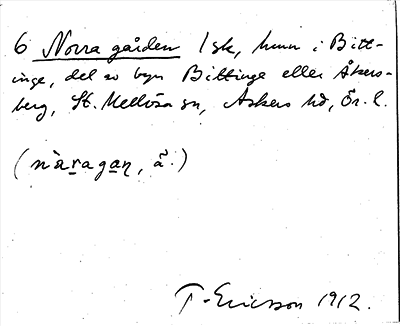 6 Norra gården 1 sk, hmn i Bitt-
inge, del av byn Bittinge eller Åkers-
berg, St. Mellösa sn, Askers hd, Ör. l.
(nàragaṇ, ã.)
T. Ericsson 1912.